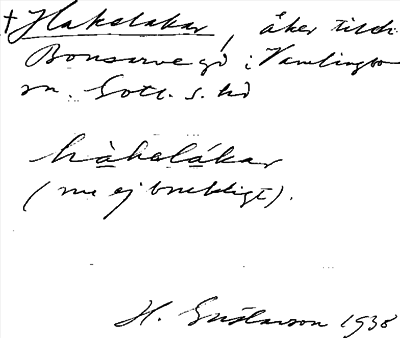 † Hakelåkar, åker till
Bonsarve gd i Vamlingbo
sn. Gotl. s. hd
hàkelákar
(nu ej brukligt).
H. Gustavson 1938